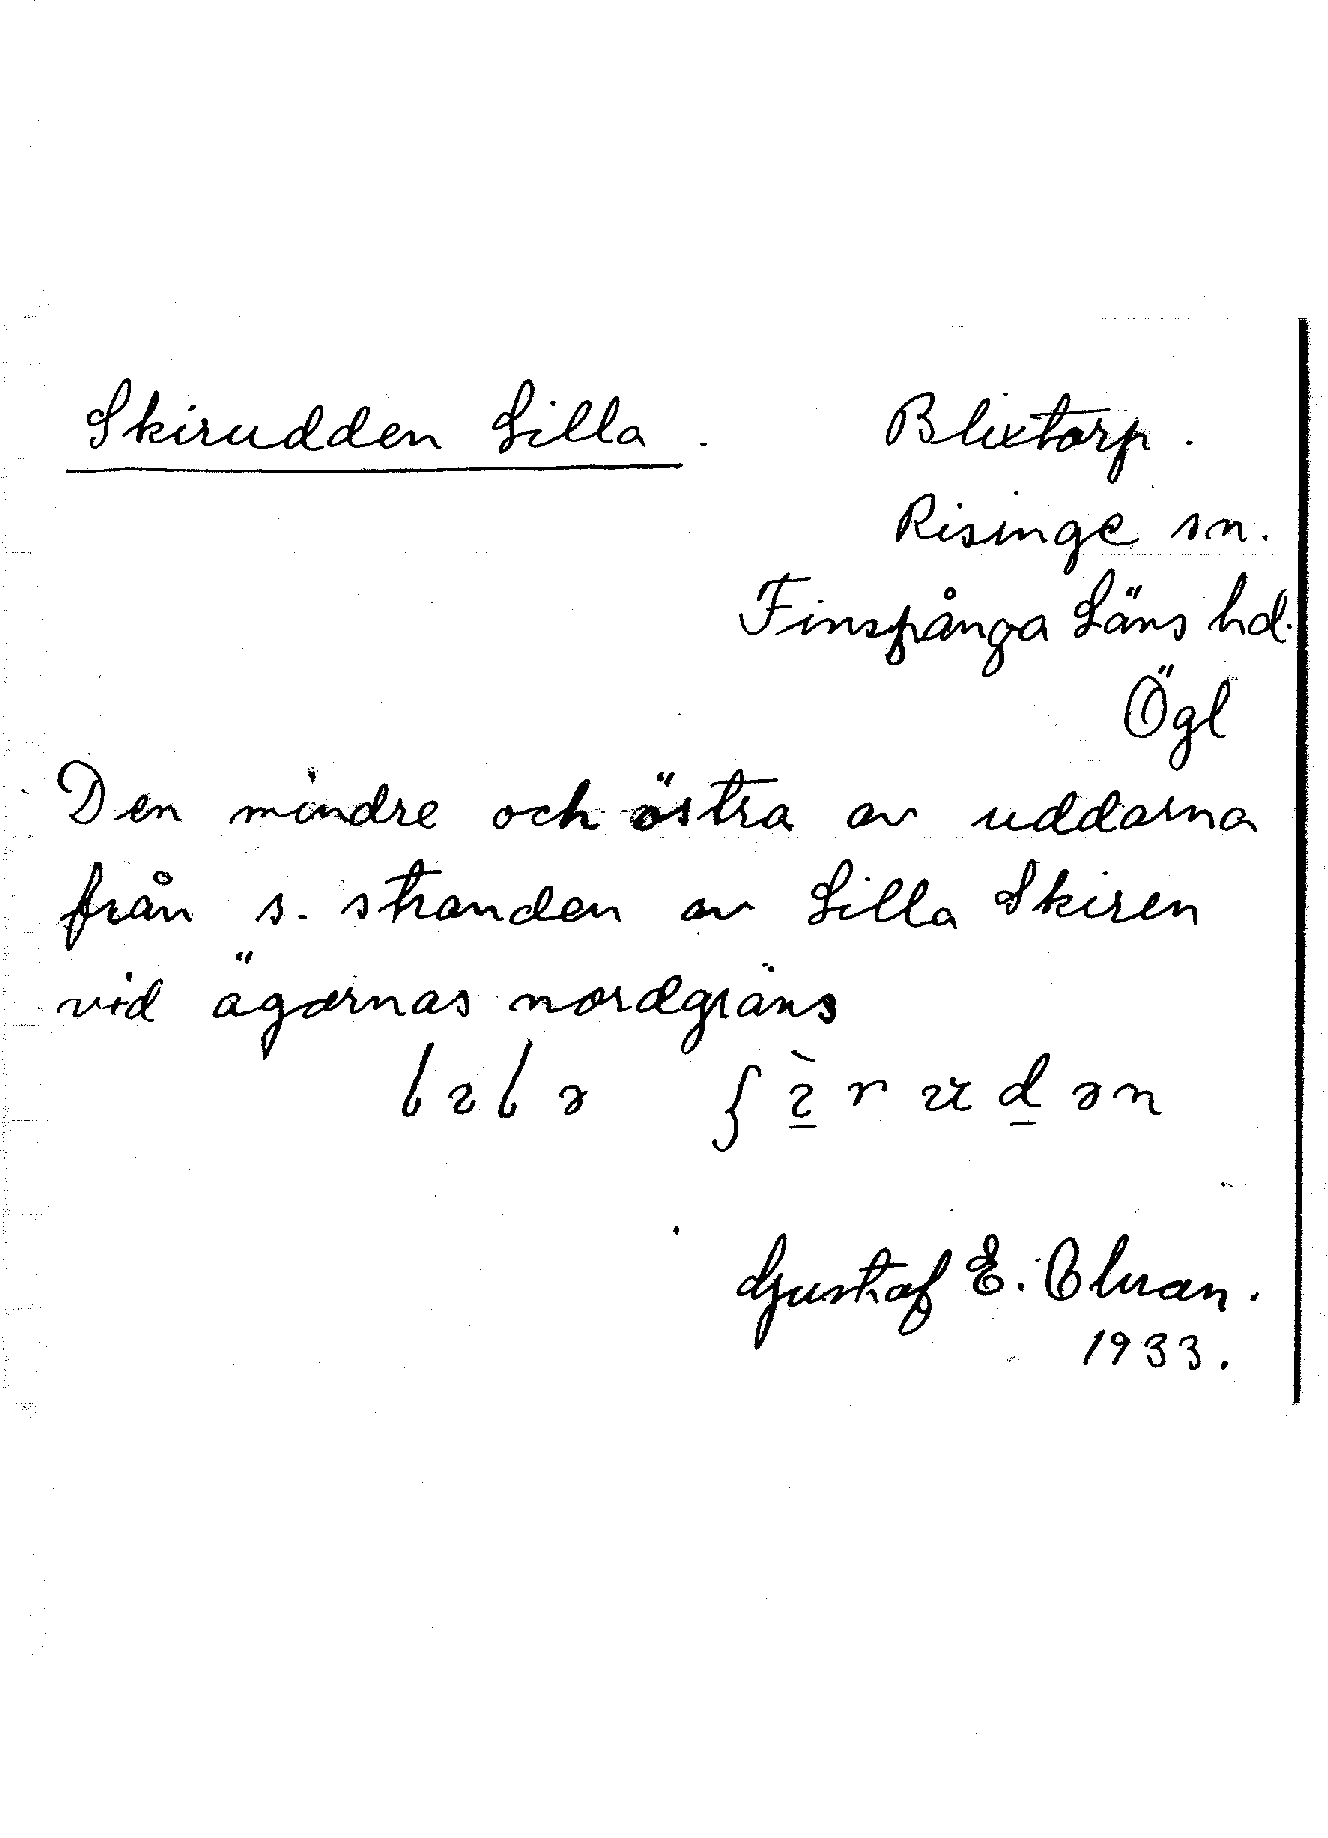 Skirudden Lilla. Blixtorp.
Risinge sn.
Finspånga Läns hd.
Ögl
Den mindre och östra av uddarna
från s. stranden av Lilla Skiren
vid ägornas nordgräns
Gustaf E.
1933.